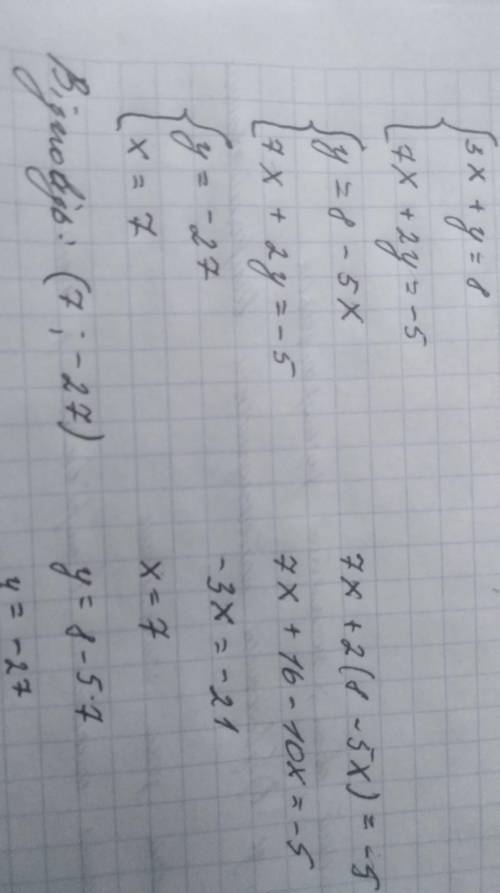 { 5x + y = 8
{ 7x + 2y = -5
{ y = 8 - 5x
{ 7x + 2y = -5
{ y = -27
{ x = 7
Відповідь: (7 ; -27)
7x + 2(8 - 5x) = -5
7x + 16 - 10x = -5
-3x = -21
x = 7
y = 8 - 5·7
y = -27